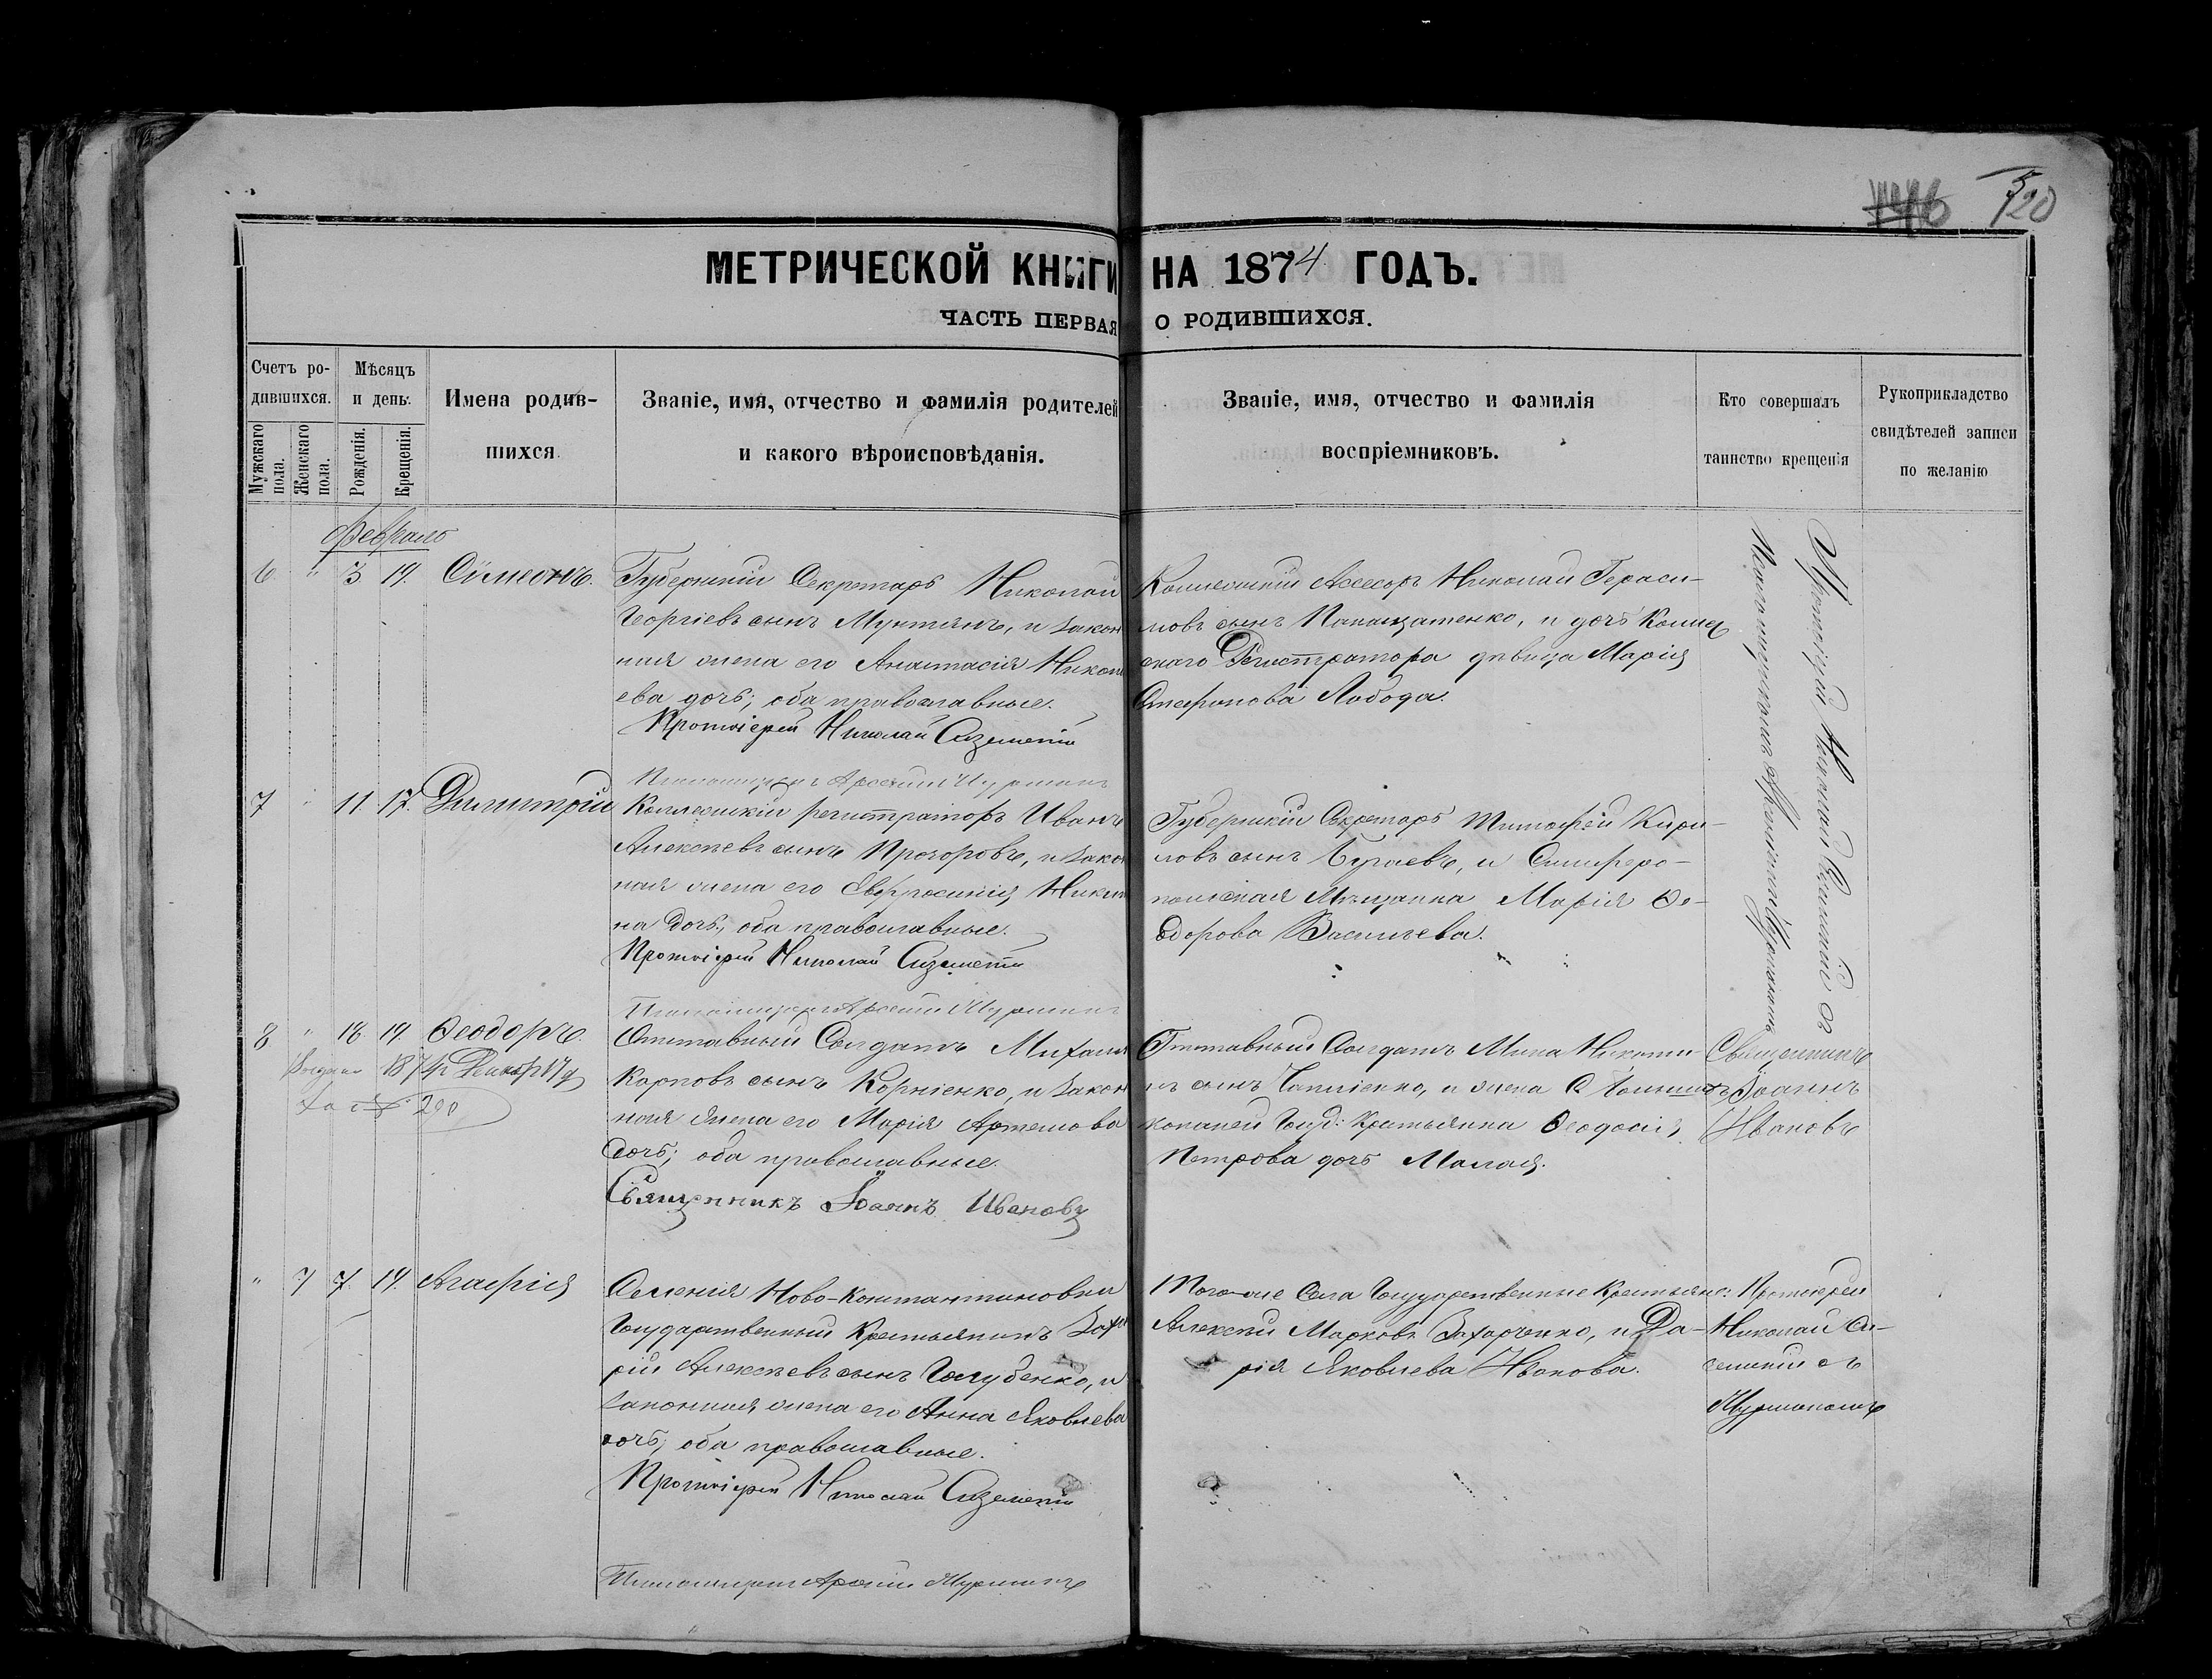 520
МЕТРИЧЕСКОЙ КНИГИ НА 1874 ГОДЪ.
ЧАСТЬ ПЕРВАЯ О РОДИВШИХСЯ.
Счетъ ро-
дившихся.
Мужскаго пола.
Женскаго пола.
Мѣсяцъ
и день.
Рожденія.
Крещенія.
Имена родив-
шихся
Званіе, имя, отчество и фамилія родителей
и какого вѣроисповѣданія.
Званіе, имя, отчество и фамилія
воспріемниковъ.
Кто совершалъ
таинство крещенія
Рукоприкладство
свидѣтелей записи
по желанію
Февраль
6 " 3 19. Сѵмеонъ.
Губернскій Секретарь Николай
Георгіевъ сынъ Мунтянъ, и закон
ная жена его Анастасія Никола
ева дочь; оба православные.
Протоіерей Николай
Коллежскій Асесоръ Николай Гераси-
мовъ сынъ и дочь Коллеж
скаго Регистратора дѣвица Марія
Стефанова Лобода.
Протоіерей Николай съ
7 " 11. 17. Димитрій
Коллежскій регистраторъ Иванъ
Алексѣевъ сынъ Прохоровъ, и закон
ная жена его Евфросинія Никити
на дочь; оба православные.
Протоіерей Николай
Губернскій Секретарь Тимофей Кири-
ловъ сынъ Бугаевъ, и Симферо-
польская Мѣщанка Марія Ѳе-
одорова Васильева.
8 " 18. 19. Ѳеодоръ.
Отставный Солдатъ Михаилъ
Карповъ сынъ Корніенко, и закон
ная жена его Марія Артемова
дочь; оба православные.
Священникъ Іоаннъ Ивановъ
Отставный Солдатъ Мина Никити
нъ сынъ и жена
Госуд: Крестьянка Ѳеодосія
Петрова дочь Малая.
Священникъ
Іоаннъ
Ивановъ
" 7 7. 19. Агафія
Селенія Ново-Константиновки
Государственный Крестьянинъ Заха
рій Алексѣевъ сынъ Голубенко, и
законная жена его Анна Яковлева
дочь; оба православные.
Протоіерей Николай
Того-же Села Государственные Крестьяне:
Алексѣй Марковъ Захарченко, и Да-
рія Яковлева Иванова.
Протоіерей
Николай